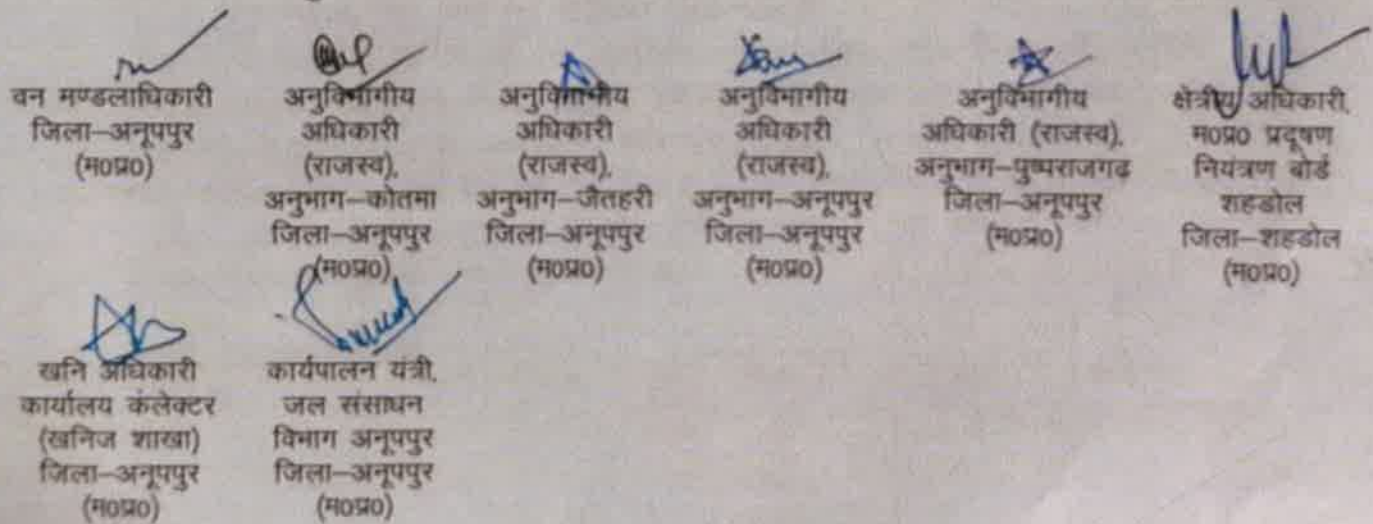 वन मण्डलाधिकारी
जिला–अनूपपुर
(म0प्र0)
अनुविभागीय
अधिकारी
(राजस्व),
अनुभाग–कोतमा
जिला–अनूपपुर
(म0प्र0)
अनुविभागीय
अधिकारी
(राजस्व),
अनुभाग–जैतहरी
जिला–अनूपपुर
(म0प्र0)
अनुविभागीय
अधिकारी
(राजस्व),
अनुभाग–अनूपपुर
जिला–अनूपपुर
(म0प्र0)
अनुविभागीय
अधिकारी (राजस्व),
अनुभाग–पुष्पराजगढ
जिला–अनूपपुर
(म0प्र0)
क्षेत्रीय अधिकारी,
म0प्र0 प्रदूषण
नियंत्रण बोर्ड
शहडोल
जिला–शहडोल
(म0प्र0)
खनि अधिकारी
कार्यालय कलेक्टर
(खनिज शाखा)
जिला–अनूपपुर
(म0प्र0)
कार्यपालन यंत्री,
जल संसाधन
विभाग अनूपपुर
जिला–अनूपपुर
(म0प्र0)